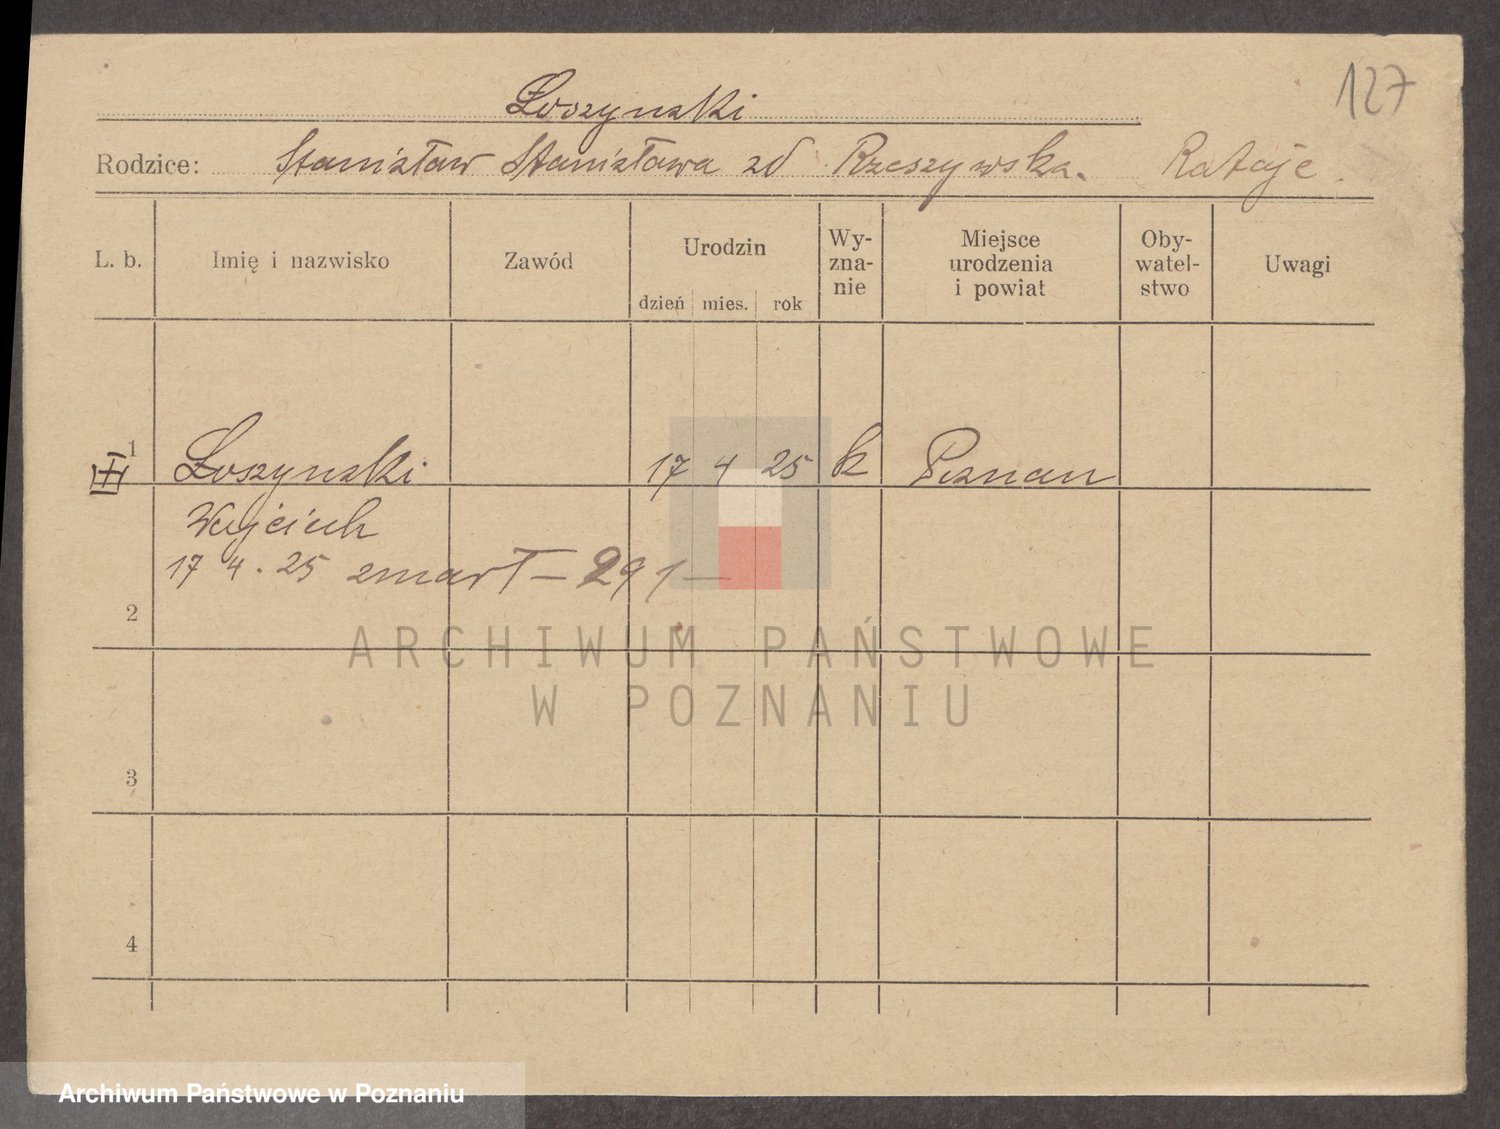 127
Łoszynski
Rodzice: Stanisław Stanisława zd Rzeszywska. Rataje.
L. b. Imię i nazwisko Zawód Urodzin dzień mies. rok Wy-zna-nie Miejsce urodzenia i powiat Oby-watel-stwo Uwagi
1 Łoszynski 17 4 25 k Poznan
Wojciech
17 4. 25 zmarł – 291 –
2
ARCHIWUM PAŃSTWOWE
W POZNANIU
3
4
Archiwum Państwowe w Poznaniu